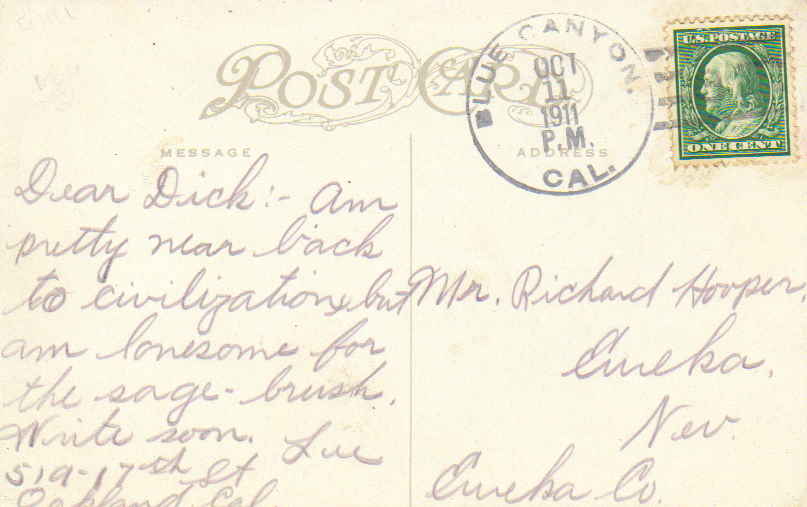 POST CARD
BLUE CANYON,
OCT
11
1911
P.M.
CAL.
U.S. POSTAGE
ONE CENT
MESSAGE
ADDRESS
Dear Dick:- Am
pretty near back
to civilization, but
am lonesome for
the sage-brush.
Write soon.
519-17th St
Oakland Cal.
Mr. Richard Hooper,
Eureka,
Nev.
Eureka Co.